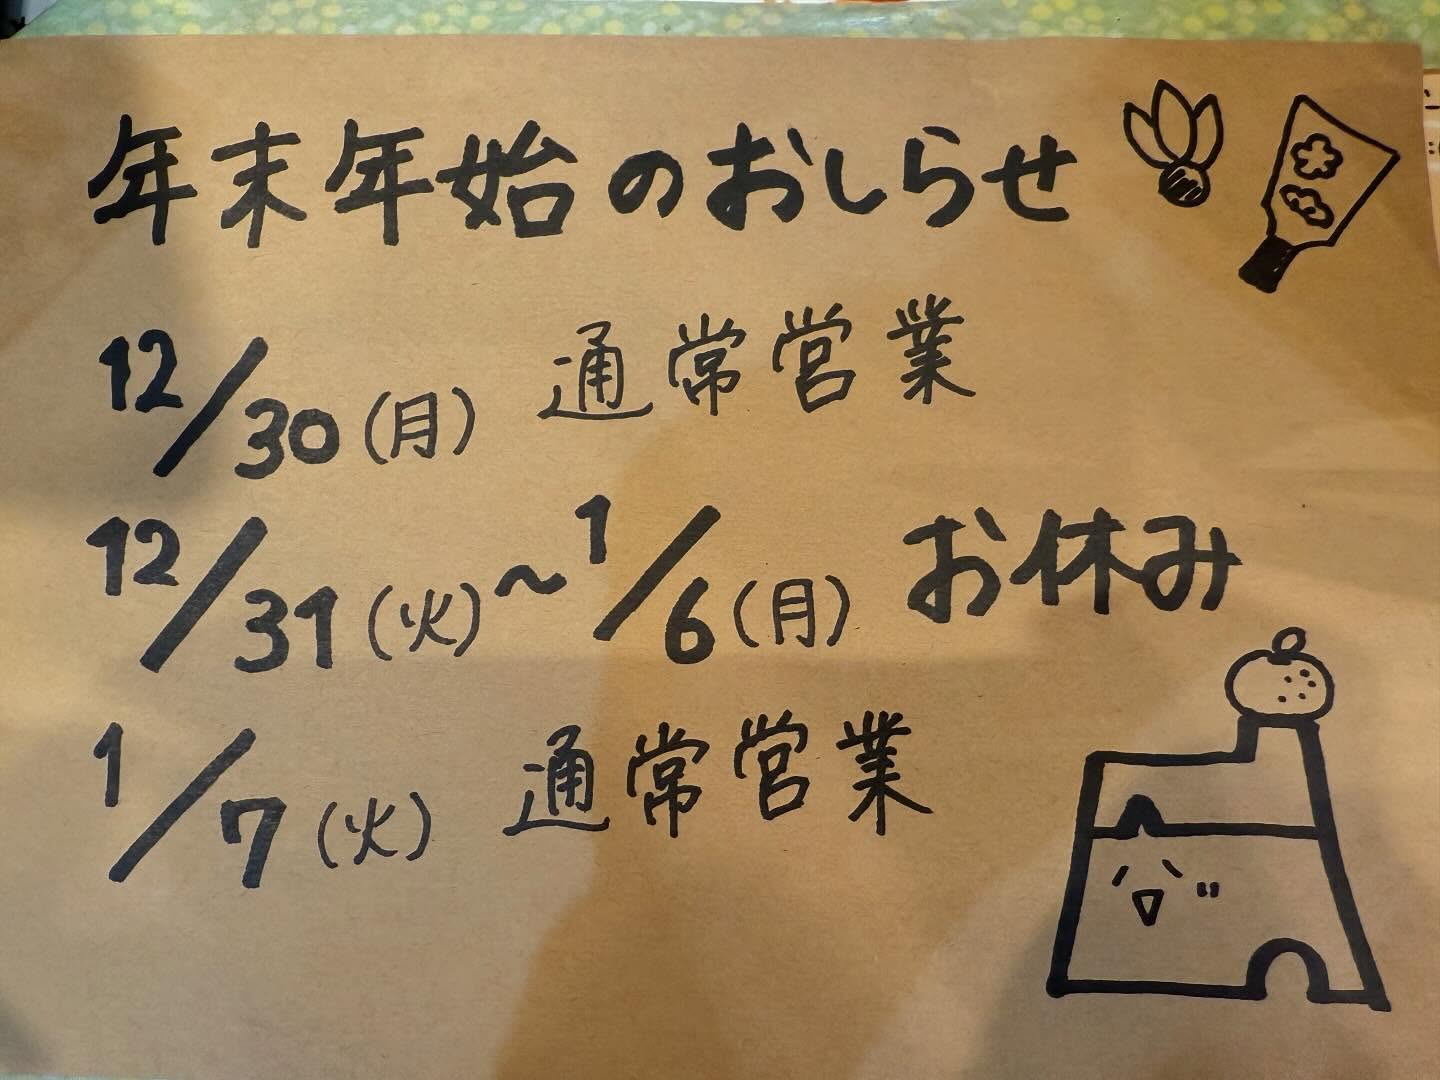 年末年始のおしらせ
12/30(月) 通常営業
12/31(火)~1/6(月) お休み
1/7(火) 通常営業